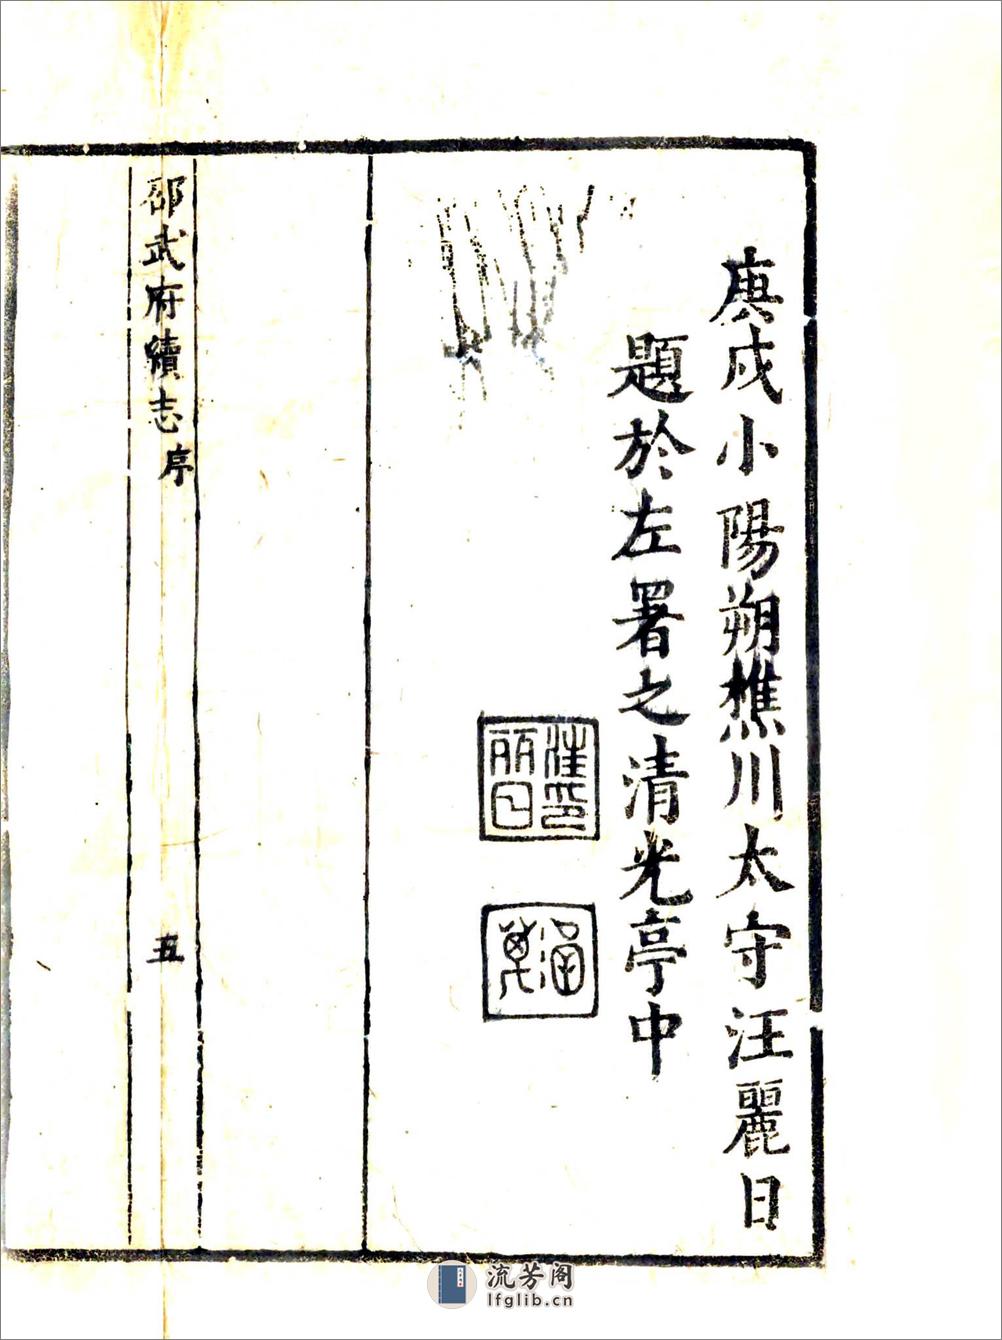 庚戌小陽朔樵川太守汪麗日
題於左署之清光亭中
汪印
麗日
邵武府續志 序
五
流芳阁
lfglib.cn